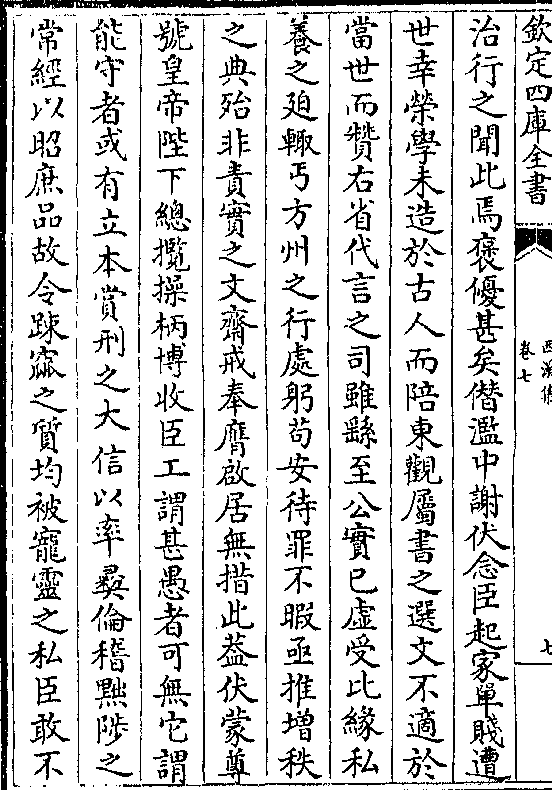 欽定四庫全書
西溪集
卷七
七
治行之聞此焉褒優甚矣僭濫中謝伏念臣起家單賤遭
世幸榮學未造於古人而陪東觀屬書之選文不適於
當世而贊右省代言之司雖繇至公實已虛受比緣私
養之廹輙丐方州之行處躬苟安待罪不暇亟推增秩
之典殆非責實之文齋戒奉膺啟居無措此葢伏蒙尊
號皇帝陛下總攬操柄博收臣工謂甚愚者可無它謂
能守者或有立本賞刑之大信以率彛倫稽黜陟之
常經以昭庶品故令踈窳之質均被寵靈之私臣敢不